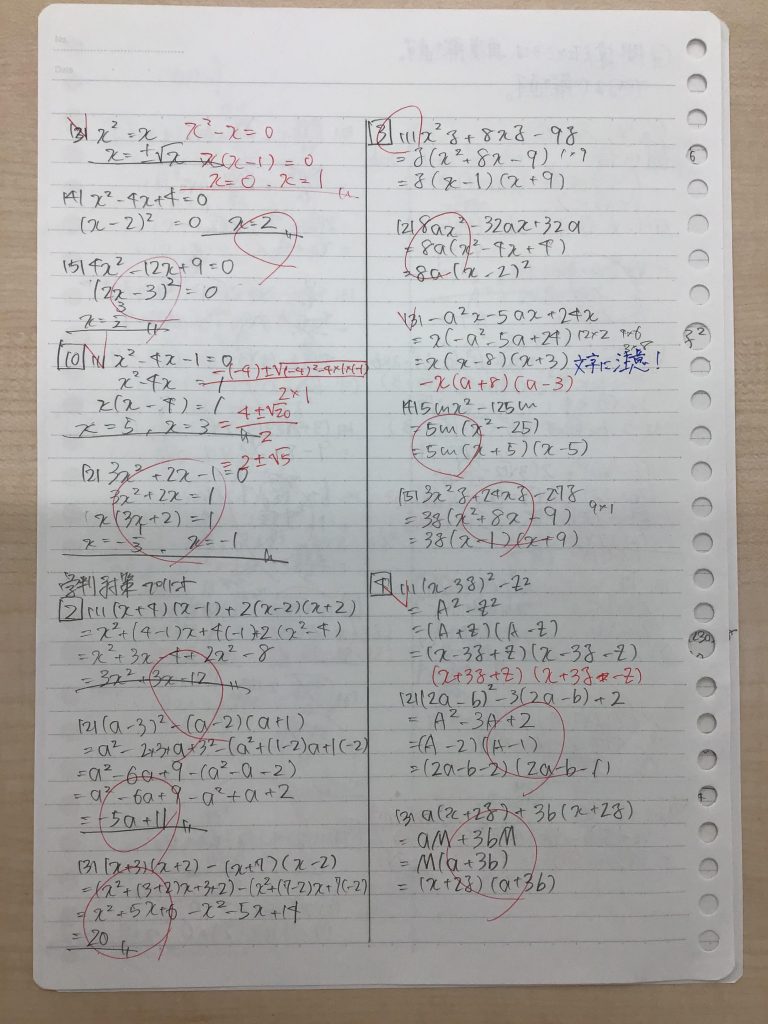 No.
Date
(3) x² = x   x² - x = 0
x = ±√x   x(x-1) = 0
x = 0 , x = 1
(4) x² - 4x + 4 = 0
(x-2)² = 0   x = 2
(5) 4x² - 12x + 9 = 0
(2x-3)² = 0
x = 3/2
10 (1) x² - 4x - 1 = 0
x² - 4x = 1   -(-4)±√(-4)²-4×1×(-1)
x(x-4) = 1   2×1
x = 5 , x = 3   = 4±√20 / 2
= 2±√5
(2) 3x² + 2x - 1 = 0
3x² + 2x = 1
x(3x+2) = 1
x = -1/3 , x = -1
2 (1) (x+4)(x-1)+2(x-2)(x+2)
= x²+(4-1)x+4(-1)+2(x²-4)
= x²+3x-4+2x²-8
= 3x²+3x-12
(2) (a-3)² - (a-2)(a+1)
= a² - 2×3×a+3² - (a²+(1-2)a+1(-2)
= a² - 6a + 9 - (a² - a - 2)
= a² - 6a + 9 - a² + a + 2
= -5a+11
(3) (x+3)(x+2) - (x+7)(x-2)
= (x²+(3+2)x+3×2) - (x²+(7-2)x+7(-2)
= x² + 5x + 6 - x² - 5x + 14
= 20
3 (1) x²y + 8xy - 9y
= y(x² + 8x - 9) 1×9
= y(x-1)(x+9)
(2) 8ax² - 32ax + 32a
= 8a(x² - 4x + 4)
= 8a(x-2)²
(3) -a²x - 5ax + 24x
= x(-a² - 5a + 24) 12×2 4×6
3×8
= x(x-8)(x+3) 文字に注意!
-x(a+8)(a-3)
(4) 5mx² - 125m
= 5m(x² - 25)
= 5m(x+5)(x-5)
(5) 3x²y + 24xy - 27y
= 3y(x² + 8x - 9) 9×1
= 3y(x-1)(x+9)
4 (1) (x-3y)² - z²
= A² - z²
= (A+z)(A-z)
= (x-3y+z)(x-3y-z)
(x+3y+z)(x+3y-z)
(2) (2a-b)² - 3(2a-b) + 2
= A² - 3A + 2
= (A-2)(A-1)
= (2a-b-2)(2a-b-1)
(3) a(x+2y) + 3b(x+2y)
= aM + 3bM
= M(a+3b)
= (x+2y)(a+3b)